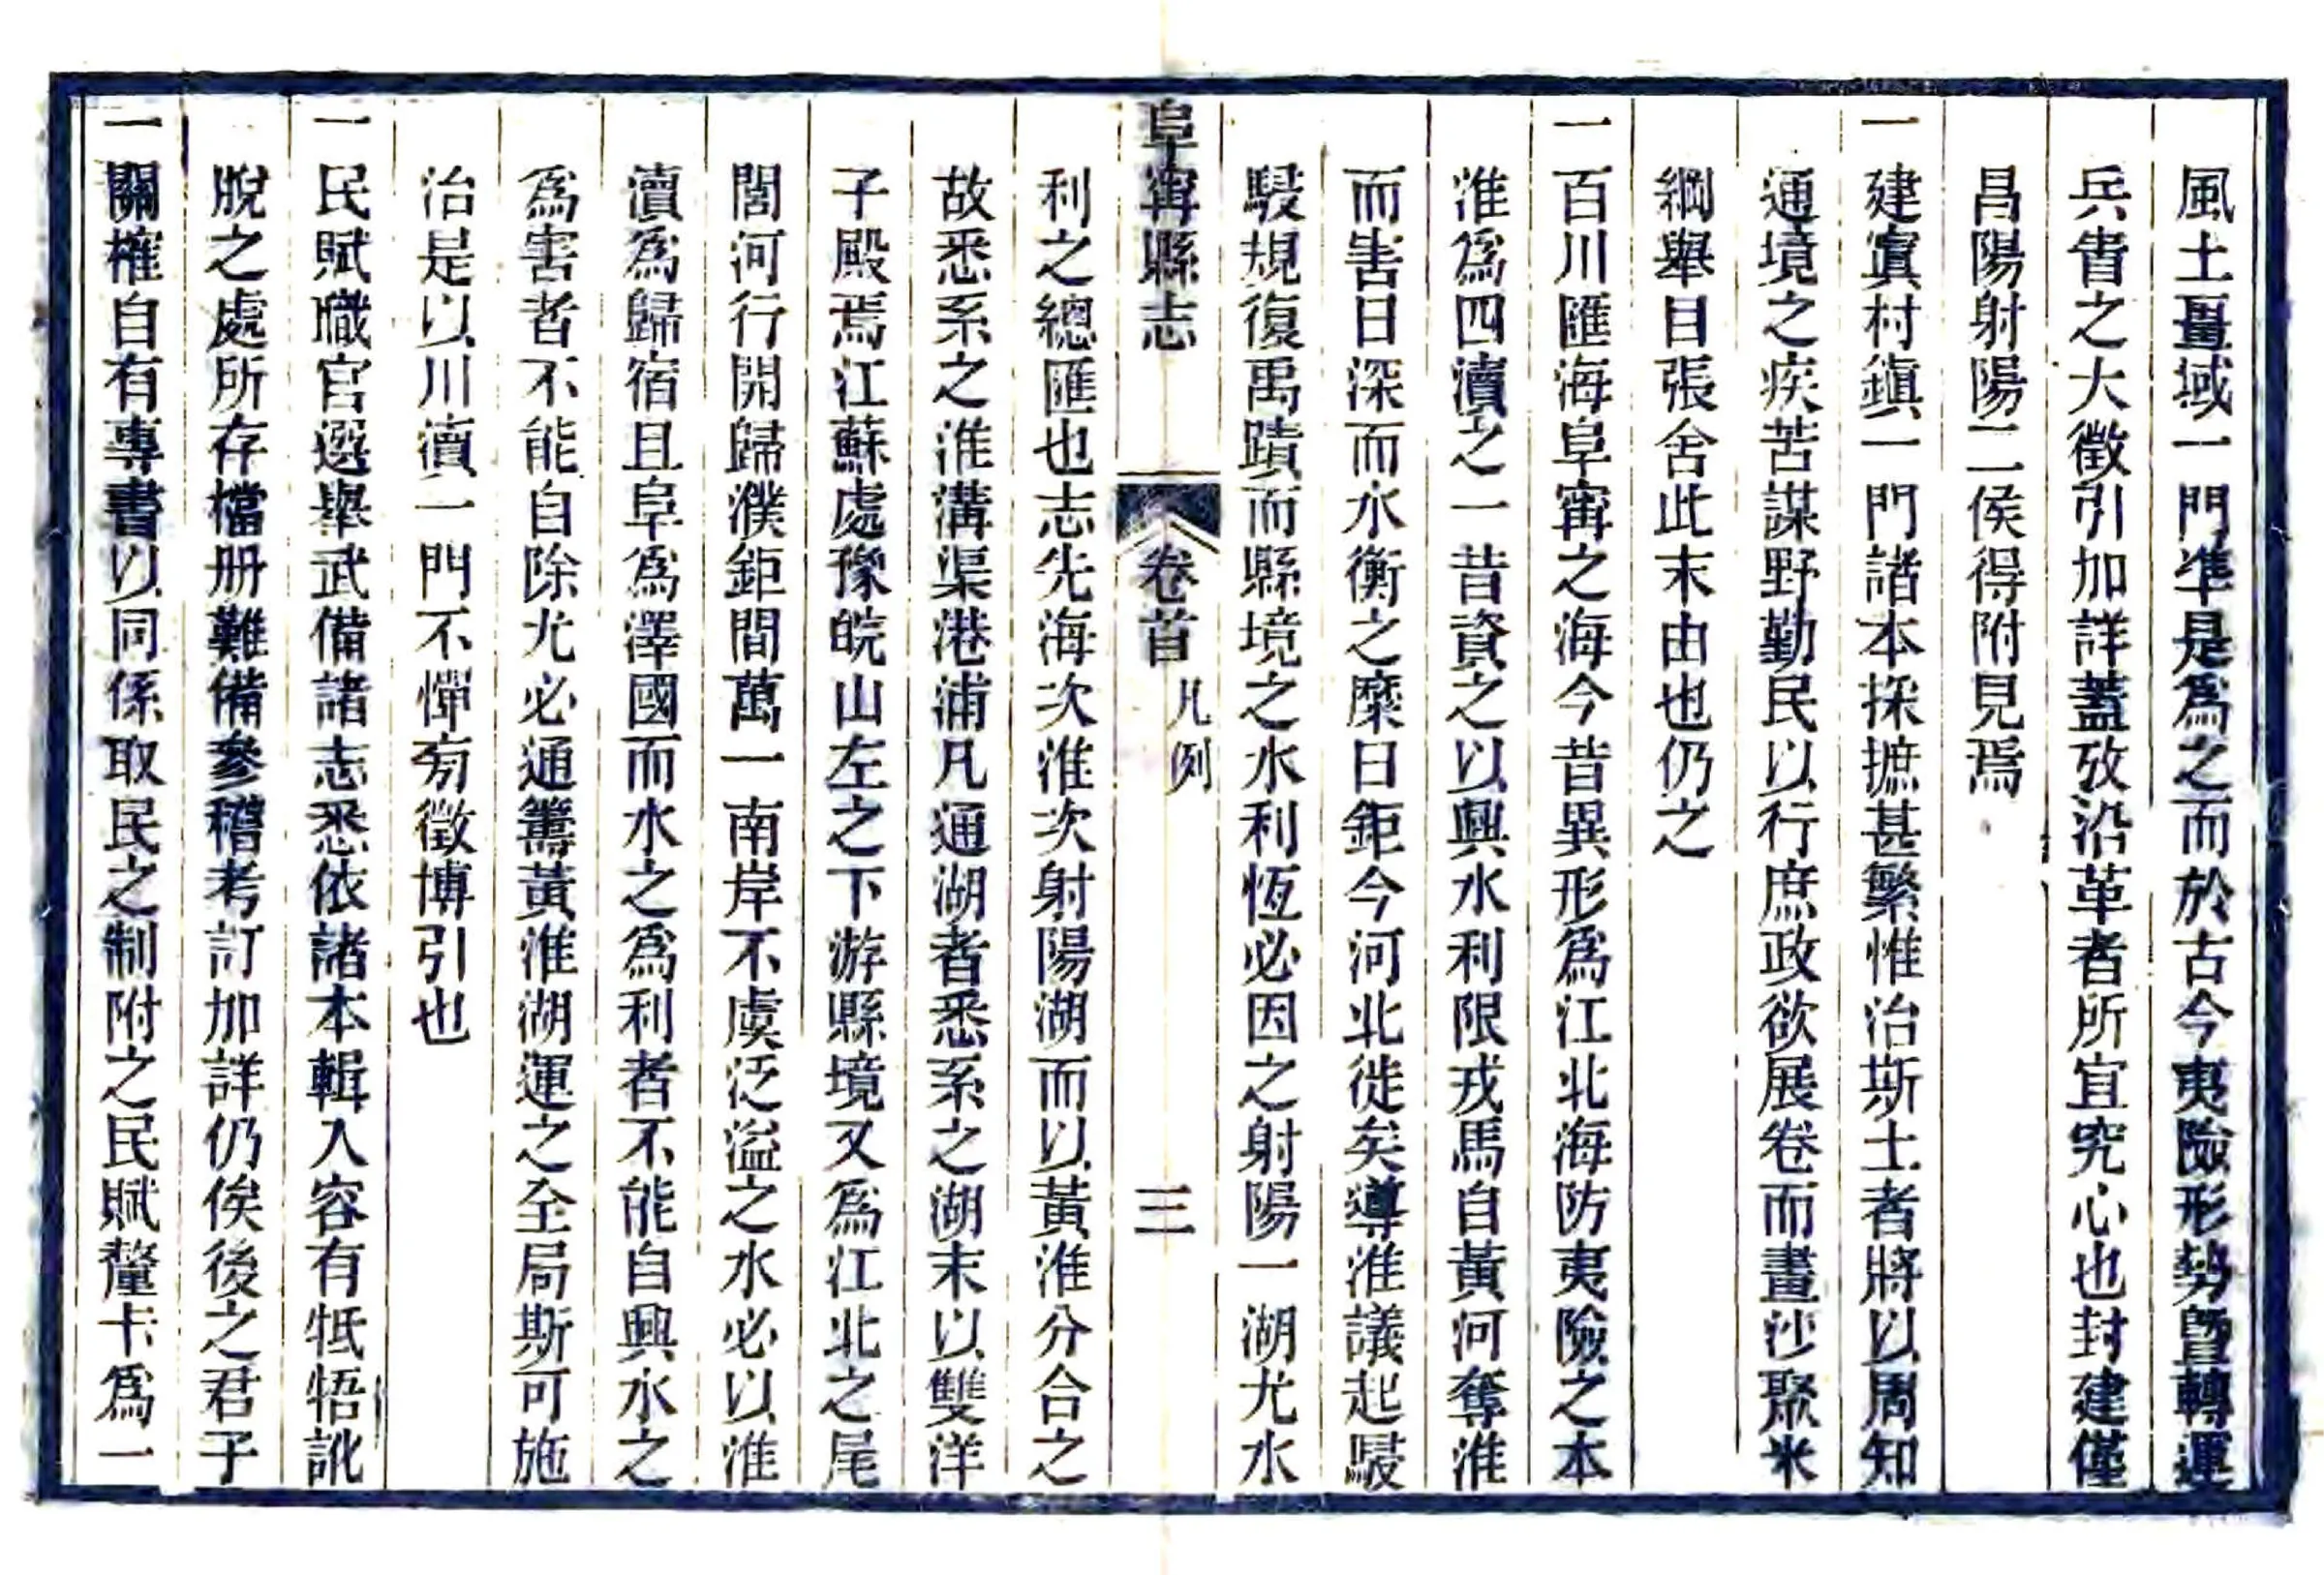 風土畺域一門準是爲之而於古今夷險形勢曁轉運
兵眚之大徵引加詳蓋攷沿革者所宜究心也封建僅
昌陽射陽二侯得附見焉
一建寘村鎭一門諸本採摭甚繁惟治斯土者將以周知
通境之疾苦謀野勤民以行庶政欲展卷而畫沙聚米
綱舉目張舍此末由也仍之
一百川匯海阜甯之海今昔異形爲江北海防夷險之本
淮爲四瀆之一昔資之以興水利限戎馬自黃河奪淮
而害日深而水衡之糜日鉅今河北徙矣導淮議起駸
駸規復禹蹟而縣境之水利恆必因之射陽一湖尤水
阜甯縣志
卷首
凡例
三
利之總匯也志先海次淮次射陽湖而以黃淮分合之
故悉系之淮溝渠港浦凡通湖者悉系之湖末以雙洋
子殿焉江蘇處豫皖山左之下游縣境又爲江北之尾
閭河行開歸濮鉅間萬一南岸不虞泛溢之水必以淮
瀆爲歸宿且阜爲澤國而水之爲利者不能自興水之
爲害者不能自除尤必通籌黃淮湖運之全局斯可施
治是以川瀆一門不憚旁徵博引也
一民賦職官選舉武備諸志悉依諸本輯入容有牴牾訛
脫之處所存檔册難備參稽考訂加詳仍俟後之君子
一關榷自有專書以同係取民之制附之民賦釐卡爲一